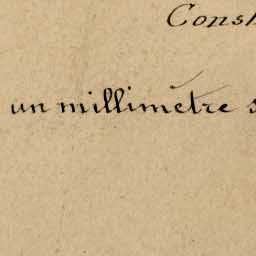 Const
un millimètre s